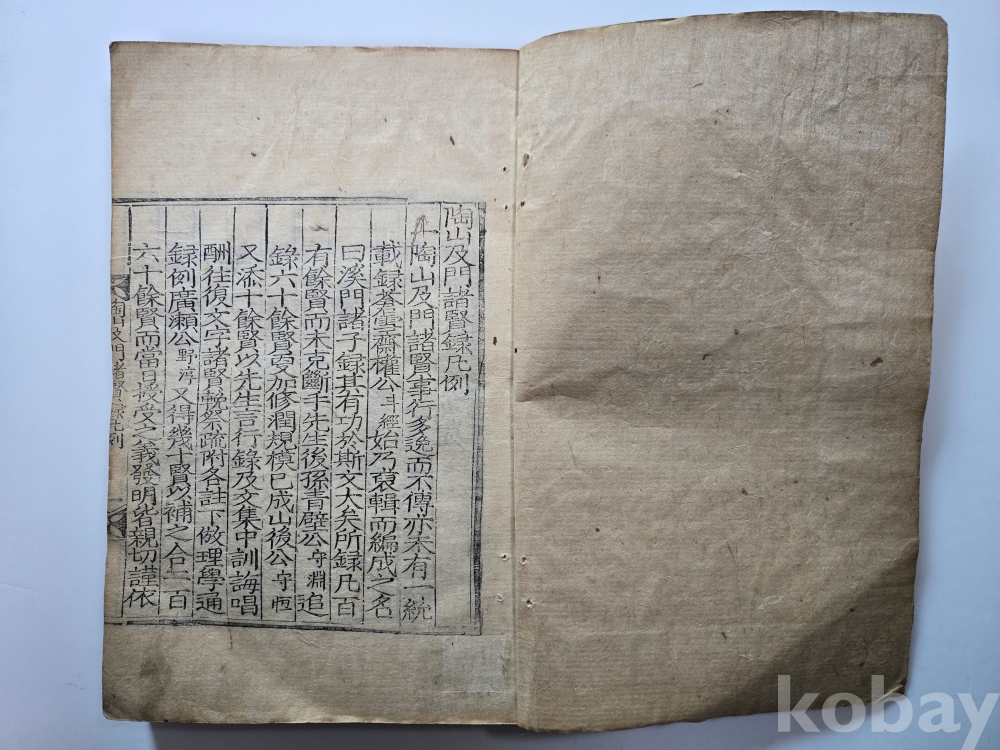 陶山及門諸賢録凡例
一陶山及門諸賢事行多逸而不傳亦未有一統
載録蒼雪齋權公斗經始乃裒輯而編成之名
曰溪門諸子録其有功於斯文大矣所録凡百
有餘賢而未克斷手先生後孫青壁公守淵追
録六十餘賢更加修潤規模已成山後公守恒
又添十餘賢以先生言行録及文集中訓誨唱
酬往復文字諸賢輓祭䟽附各註下倣理學通
録例廣瀬公野淳又得幾十賢以補之合二百
六十餘賢而當日授受之義發明皆親切謹依
陶山及門諸賢録凡例
kobay